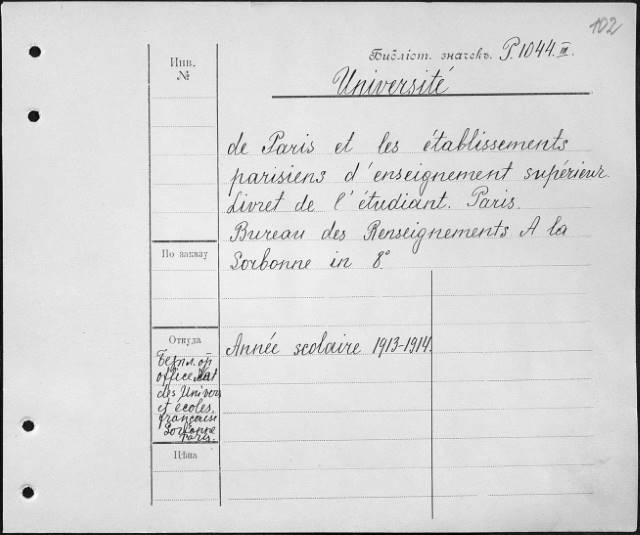 102
Инв.
№
Библіот. значекъ. P.1044.III.
Université
de Paris et les établissements
parisiens d'enseignement supérieur.
Livret de l'étudiant. Paris.
Bureau des Renseignements A la
Sorbonne in 8°.
По заказу
Откуда
Année scolaire 1913-1914.
Безпл. от
office nat
des Univers
et écoles
française
Sorbonne
Paris.
Цѣна